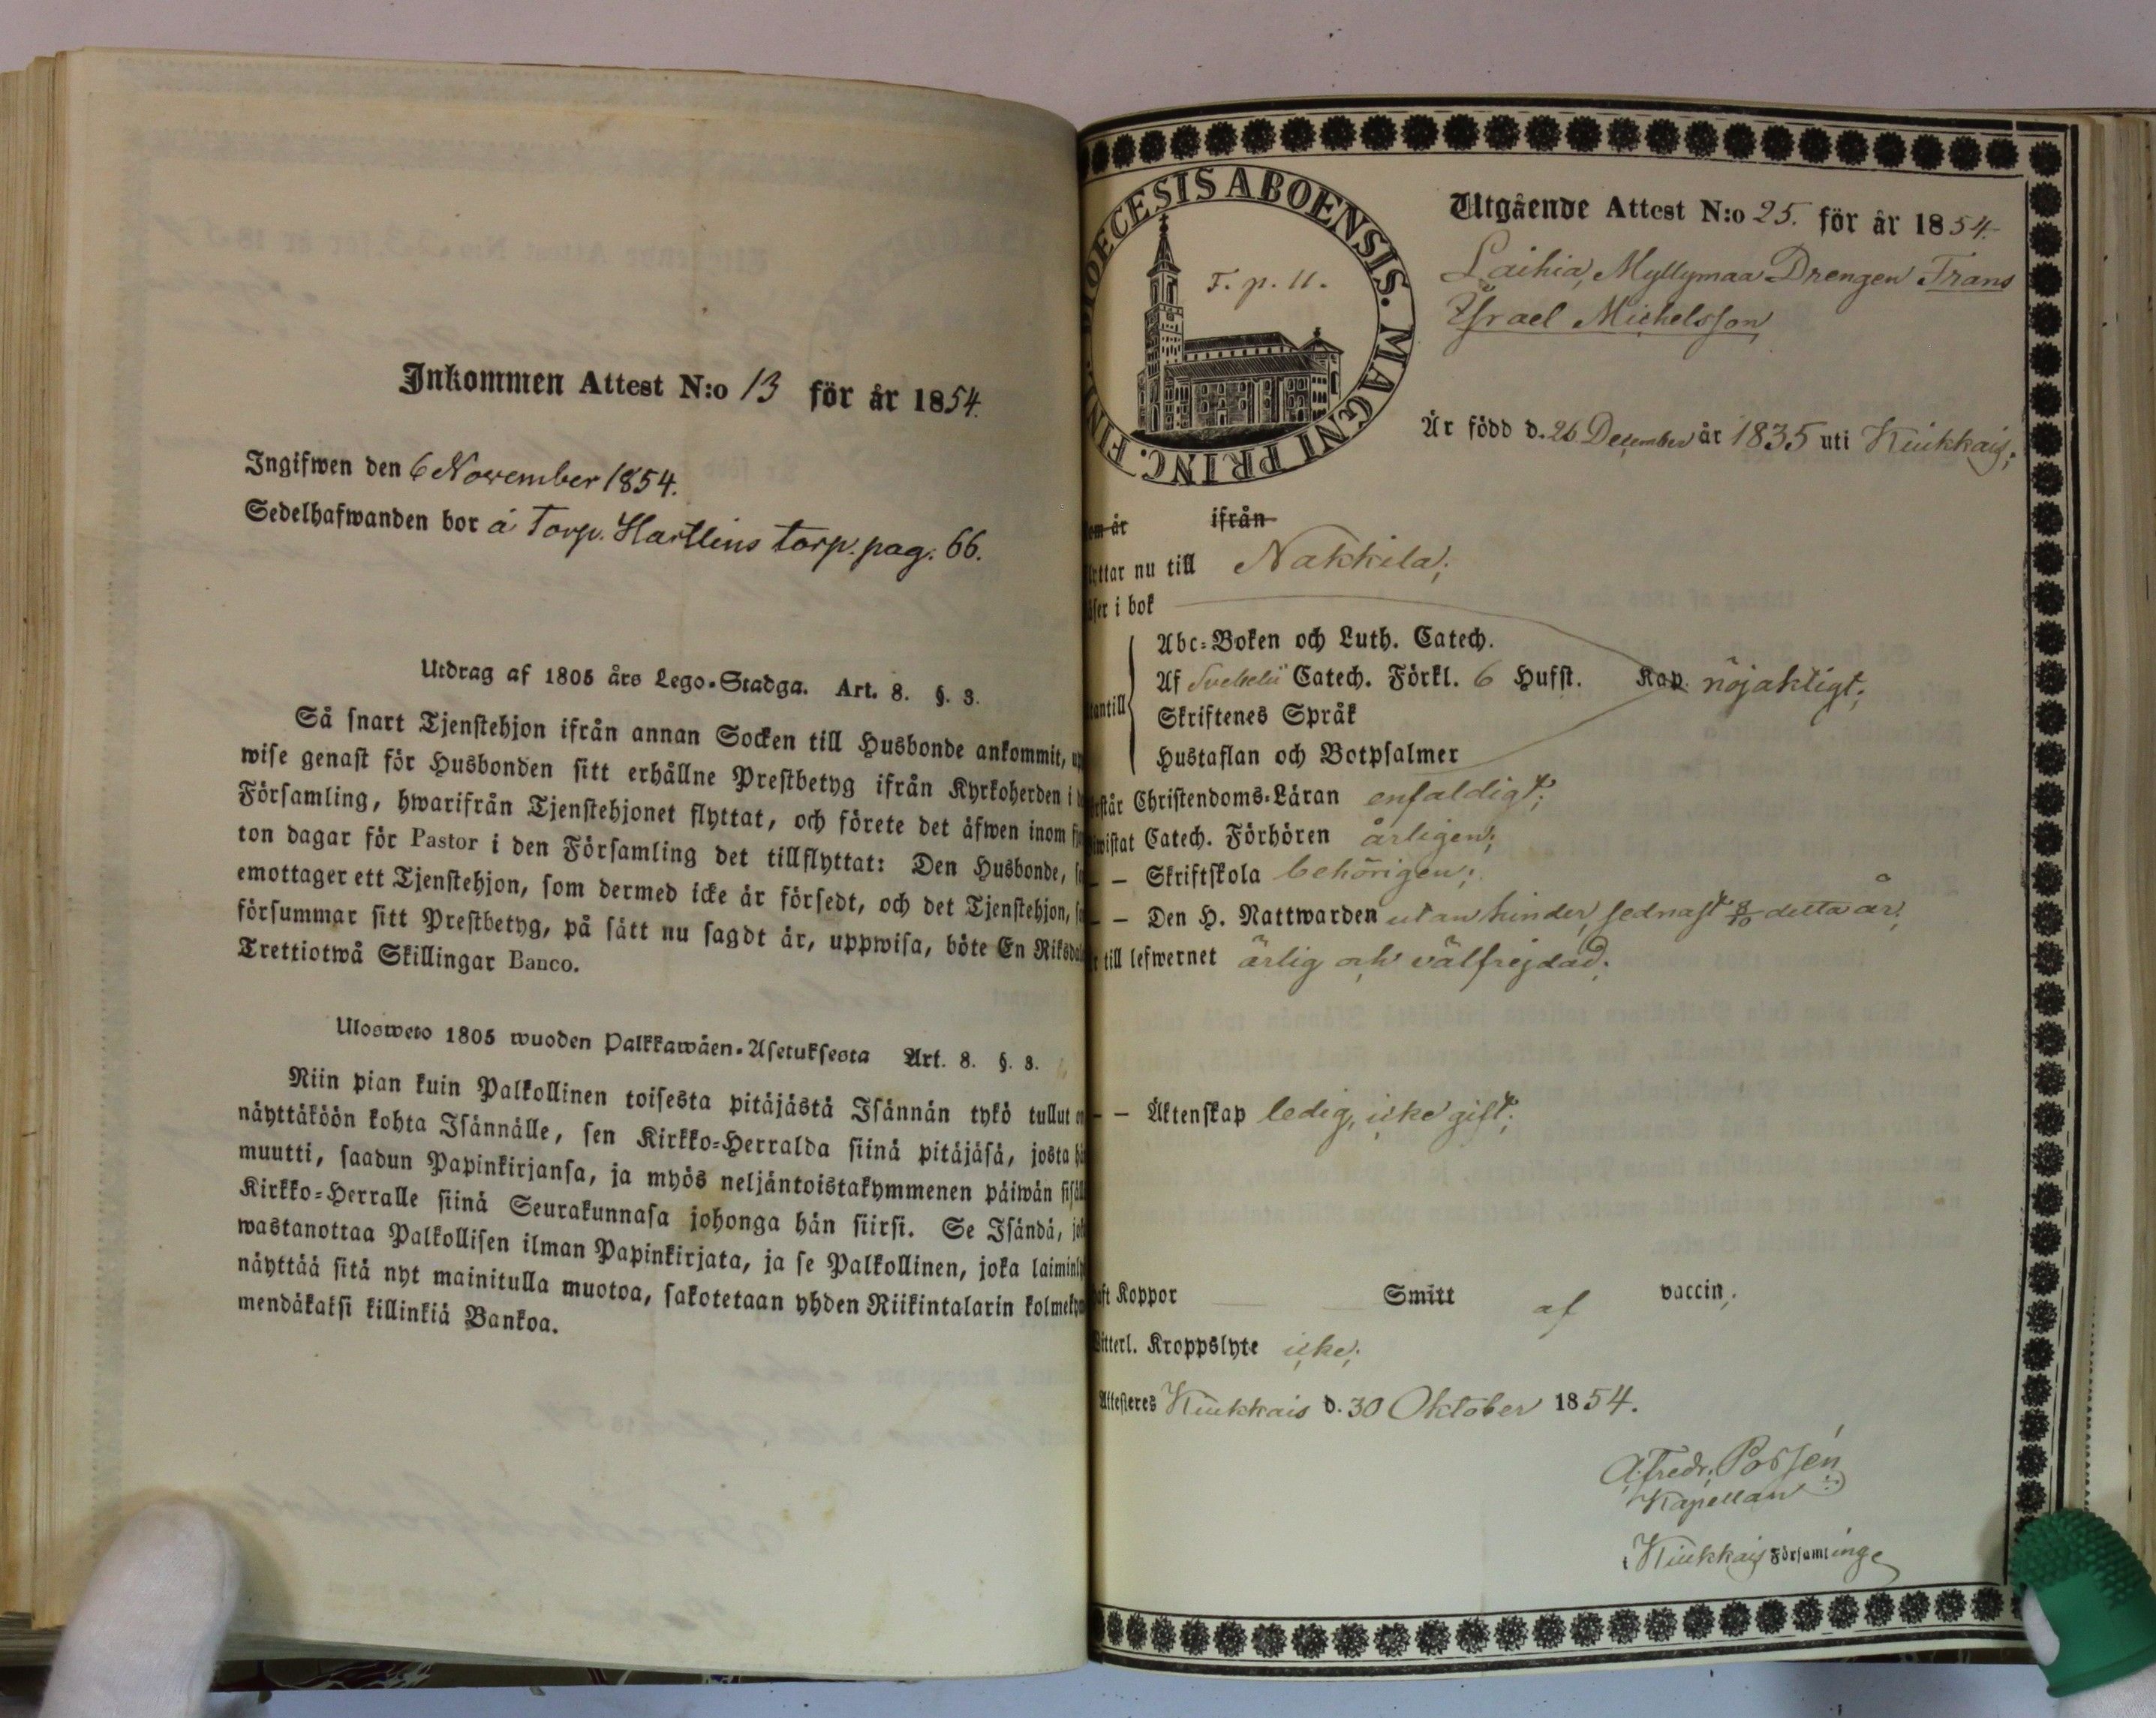 Inkommen Attest N:o 13 för år 1854.
Ingifwen den 6 November 1854.
Sedelhafwanden bor å Torp. Hartlins torp. pag. 66.
Utdrag af 1805 års Lego-Stadga. Art. 8. §. 3.
Så snart Tjenstehjon ifrån annan Socken till Husbonde ankommit,
wise genast för Husbonden sitt erhållne Prestbetyg ifrån Kyrkoherden i
Församling, hwarifrån Tjenstehjonet flyttat, och förete det äfwen inom
ton dagar för Pastor i den Församling det tillflyttat: Den Husbonde,
emottager ett Tjenstehjon, som dermed icke är försedt, och det Tjenstehjon,
försummar sitt Prestbetyg, på sätt nu sagdt är, uppwisa, böte En Riksda
Trettiotwå Skillingar Banco.
Ulosweto 1805 wuoden Palkkawäen-Asetuksesta Art. 8. §. 3.
Niin pian kuin Palkollinen toisesta pitäjästä Isännän tykö tullut on
näyttäköön kohta Isännälle, sen Kirkko-Herralda siinä pitäjäsä, josta hä
muutti, saadun Papinkirjansa, ja myös neljäntoistakymmenen päiwän sisäl
Kirkko-Herralle siinä Seurakunnasa johonga hän siirsi. Se Isändä, jok
wastanottaa Palkollisen ilman Papinkirjata, ja se Palkollinen, joka laiminly
näyttää sitä nyt mainitulla muotoa, sakotetaan yhden Riikintalarin kolmeky
mendäkaksi killinkiä Bankoa.
DIOECESIS ABOENSIS. MAGNI PRINC. FINL.
F. p. 11.
Utgående Attest N:o 25. för år 1854.
Laihia, Myllymaa Drengen Frans
Israel Michelsson,
Är född d. 26 December år 1835 uti Kiukkais;
om är ifrån
yttar nu till Nakkila;
äser i bok
Abc-Boken och Luth. Catech.
Af Svebelii Catech. Förkl. 6 Hufst. Kap. nöjaktigt;
antill
Skriftenes Språk
Hustaflan och Botpsalmer
rstår Christendoms-Läran enfaldigt;
wistat Catech. Förhören årligen;
– – Skriftskola behörigen;
– – Den H. Nattwarden utan hinder, sednast 8/10 detta år;
r till lefwernet ärlig och välfrejdad;
– – Äktenskap ledig, icke gift;
aft Koppor — — Smitt af vaccin;
itterl. Kroppslyte icke;
Attesteres Kiukkais d. 30 Oktober 1854.
A. Fredr. Possén
Kapellan
i Kiukkais Församling